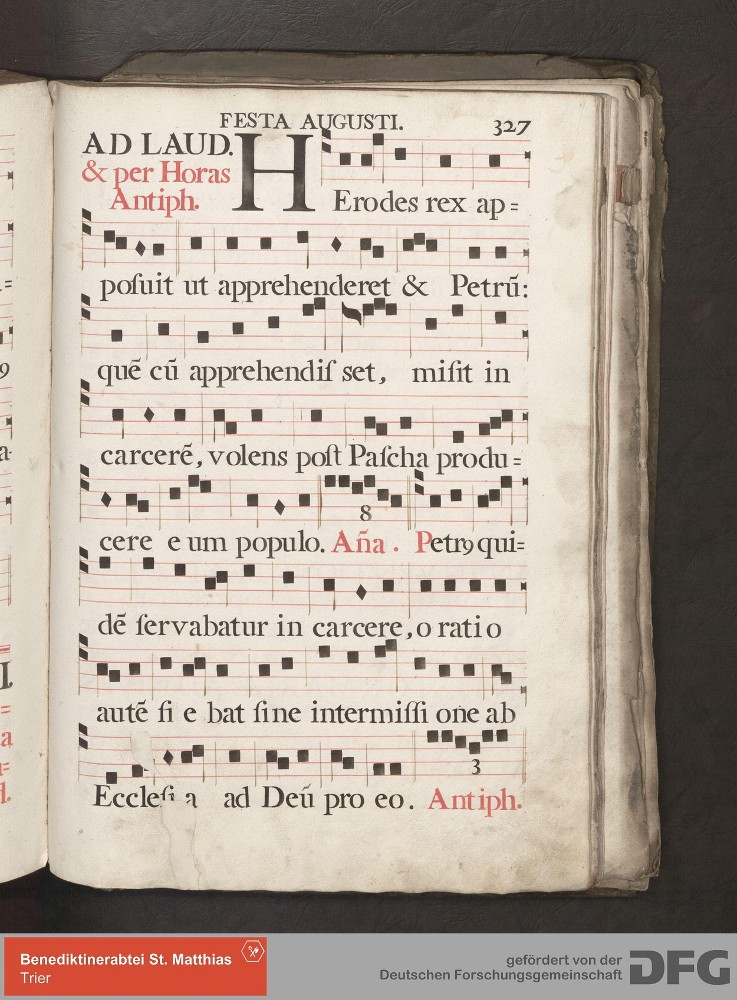 FESTA AUGUSTI. 327
AD LAUD.
& per Horas
Antiph.
HErodes rex ap=
poſuit ut apprehenderet & Petrũ:
quẽ cũ apprehendiſ set, miſit in
carcerẽ, volens poſt Paſcha produ=
8
cere e um populo. Añа. Petrꝰ qui=
dẽ ſervabatur in carcere, o rati o
autẽ ſi e bat ſine intermiſſi one ab
3
Eccleſi a ad Deũ pro eo. Antiph.
Benediktinerabtei St. Matthias
Trier
gefördert von der
Deutschen Forschungsgemeinschaft
DFG